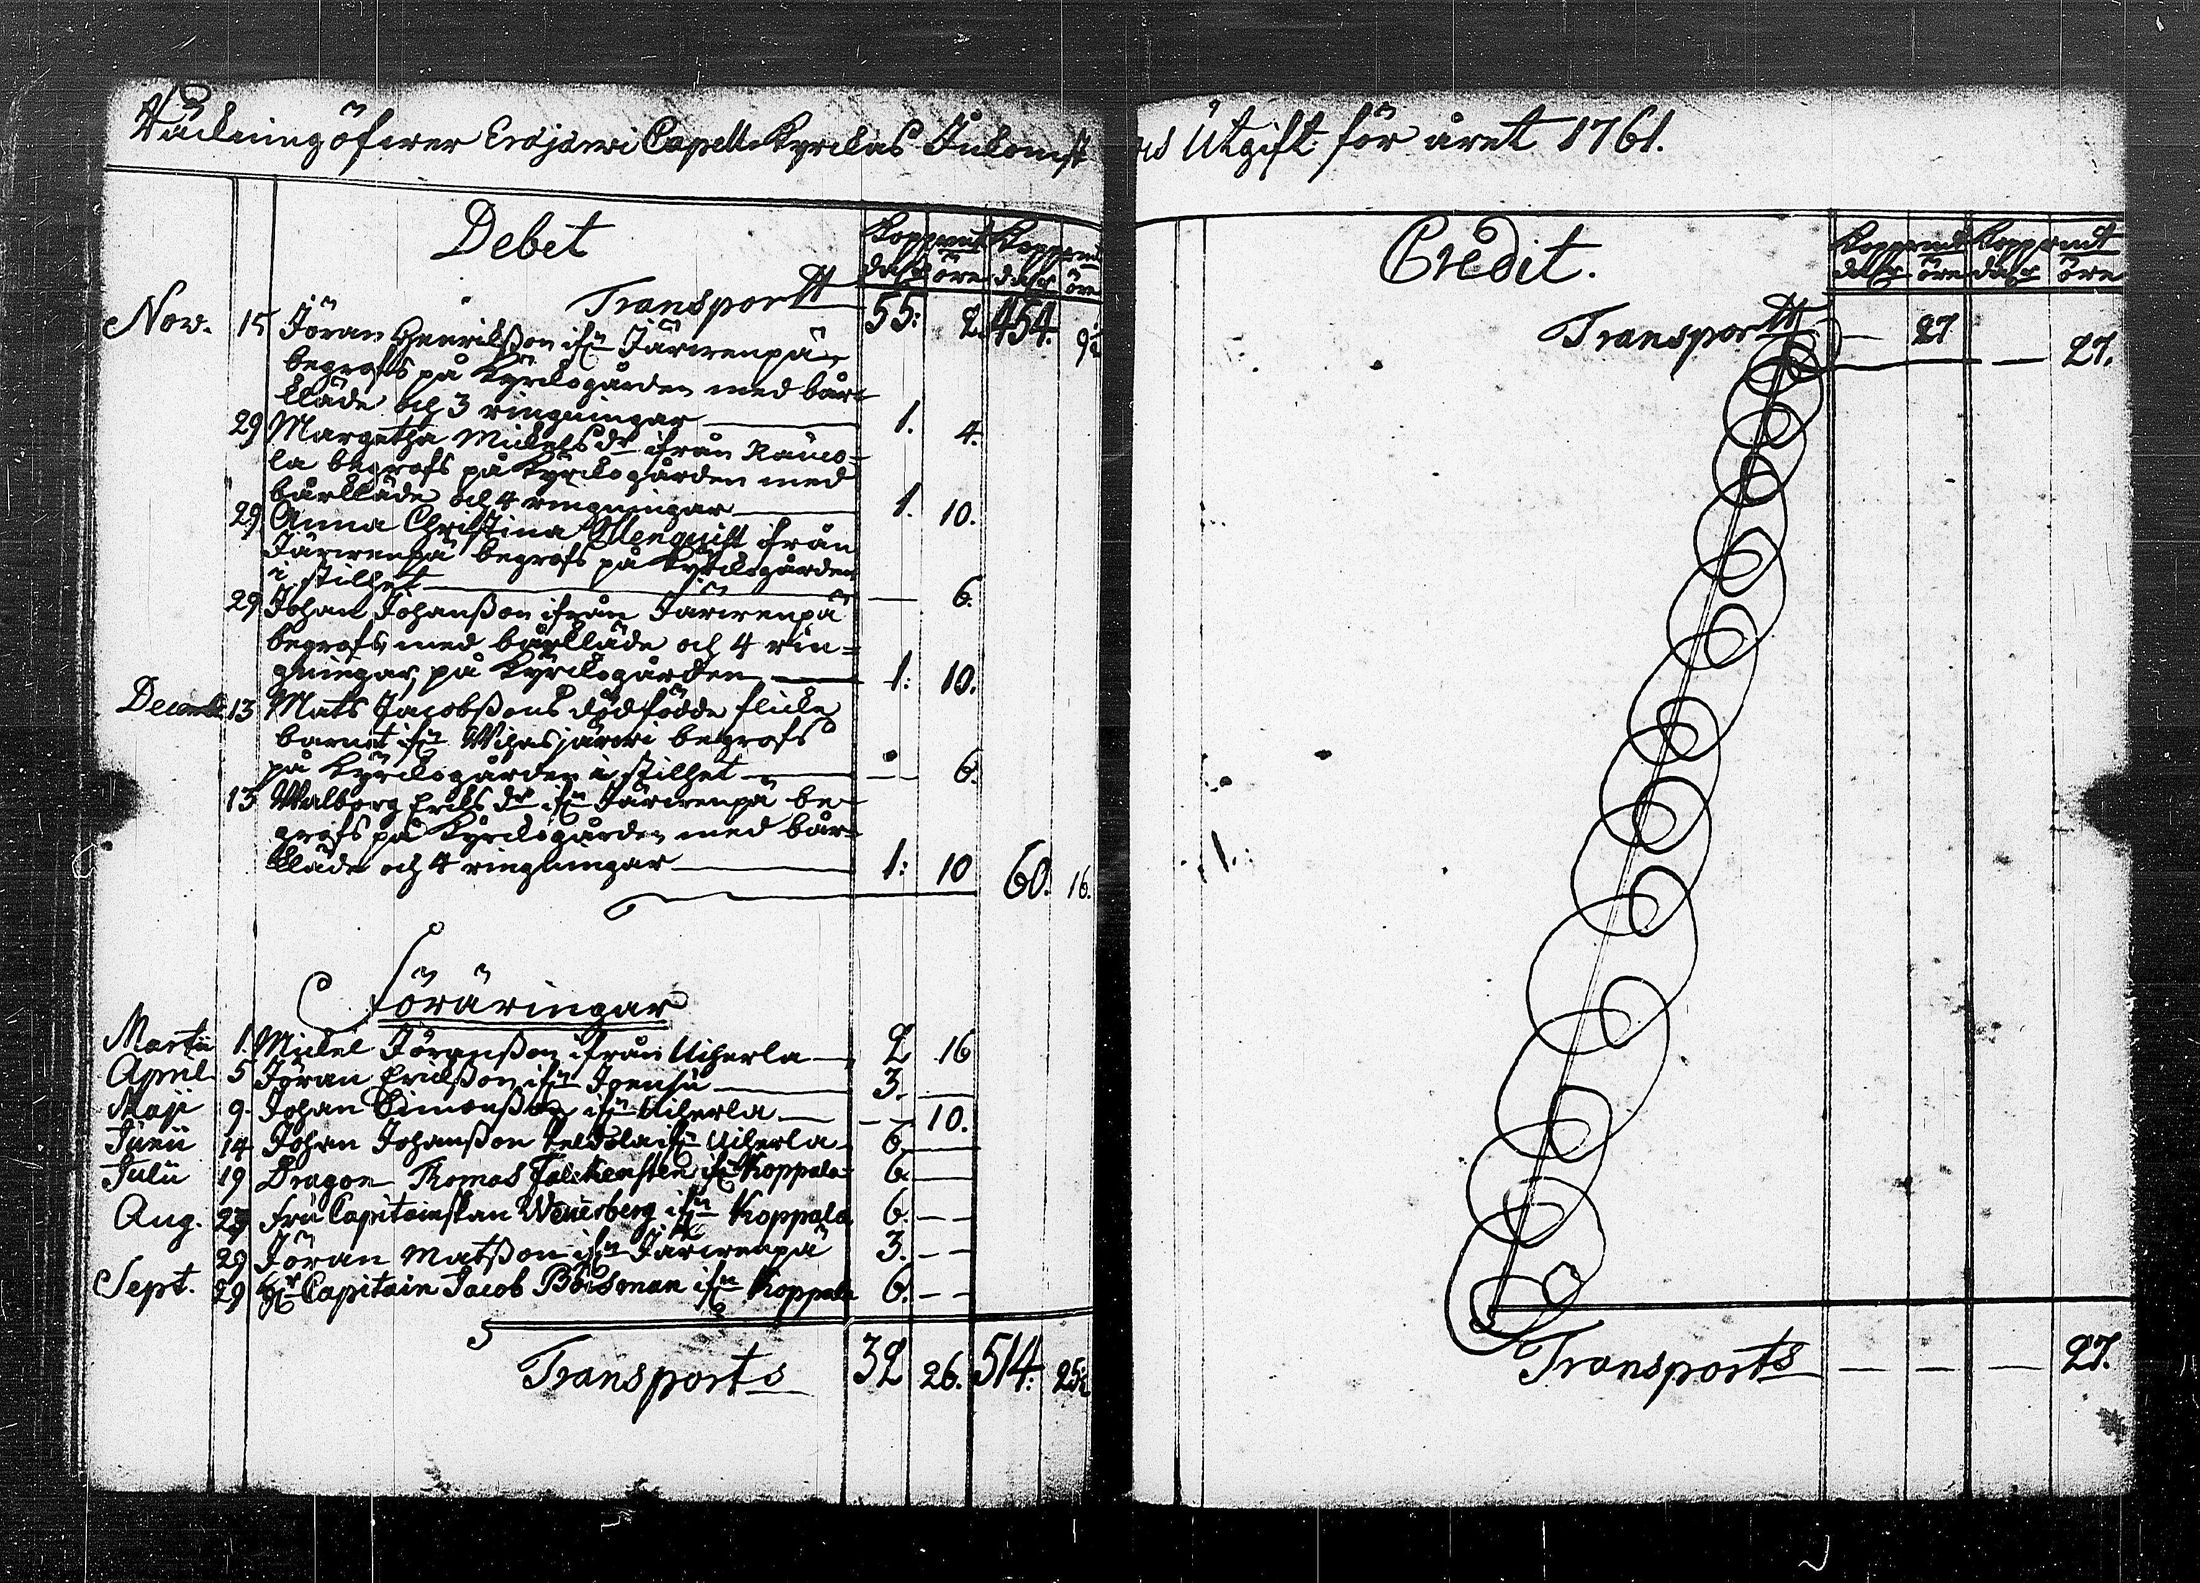 Räckning öfwer Erajärwi Capell Kyrckas Inkomst
Debet
Koppmt Koppmt
dalr öre dalr öre
Transportt 55: 2. 454. 9½
Nov. 15 Jöran Henrikßon ifrn Järwenpä
begrofs på Kyrckogården med bår-
kläde och 3 ringningar 1. 4.
29 Margetha Mickelsdr ifrån Rauo-
la begrofs på Kyrckogården med
bårkläde och 4 ringningar 1. 10.
29 Anna Christina Allenquist ifrån
Järwenpä begrofs på Kyrckogården
i stilhet — 6.
29 Johan Johanßon ifrån Järwenpä
begrofs med bårkläde och 4 rin=
gningar, på Kyrckogården 1: 10.
Decemb 13 Mats Jacobßons dödfödde flicke
barnet ifrn Wihasjärwi begrofs
på Kyrckogården i stilhet — 6.
13 Walborg Ericsdr ifrn Järwenpä be-
grofs på Kyrckogården med bår-
kläde och 4 ringningar 1: 10 60. 16.
Föräringar
Martii 1. Mickel Jöranßon ifrån Uiherla 2 16
April 5 Jöran Erickßon ifrn Joensu 3. —
Maji 9. Johan Simonßon ifrn Uiherla — 10.
Junii 14 Johan Johanßon ifrn Uiherla 6 —
Julii 19 Dragon Thomas Falckensten ifrn Koppala 6 —
Aug. 23 Fru Capitainskan Wenerberg ifrn Koppala 6. — —
29 Jöran Matßon ifrn Järwenpä 3. — —
Sept. 29 Hr Capitain Jacob Boisman ifrn Koppala 6. — —
Transports 32 26. 514. 25½
as Utgift för året 1761.
Credit.
Koppmt Koppmt
dalr öre dalr öre
Transportt — 27 — 27.
Transports — — — 27.